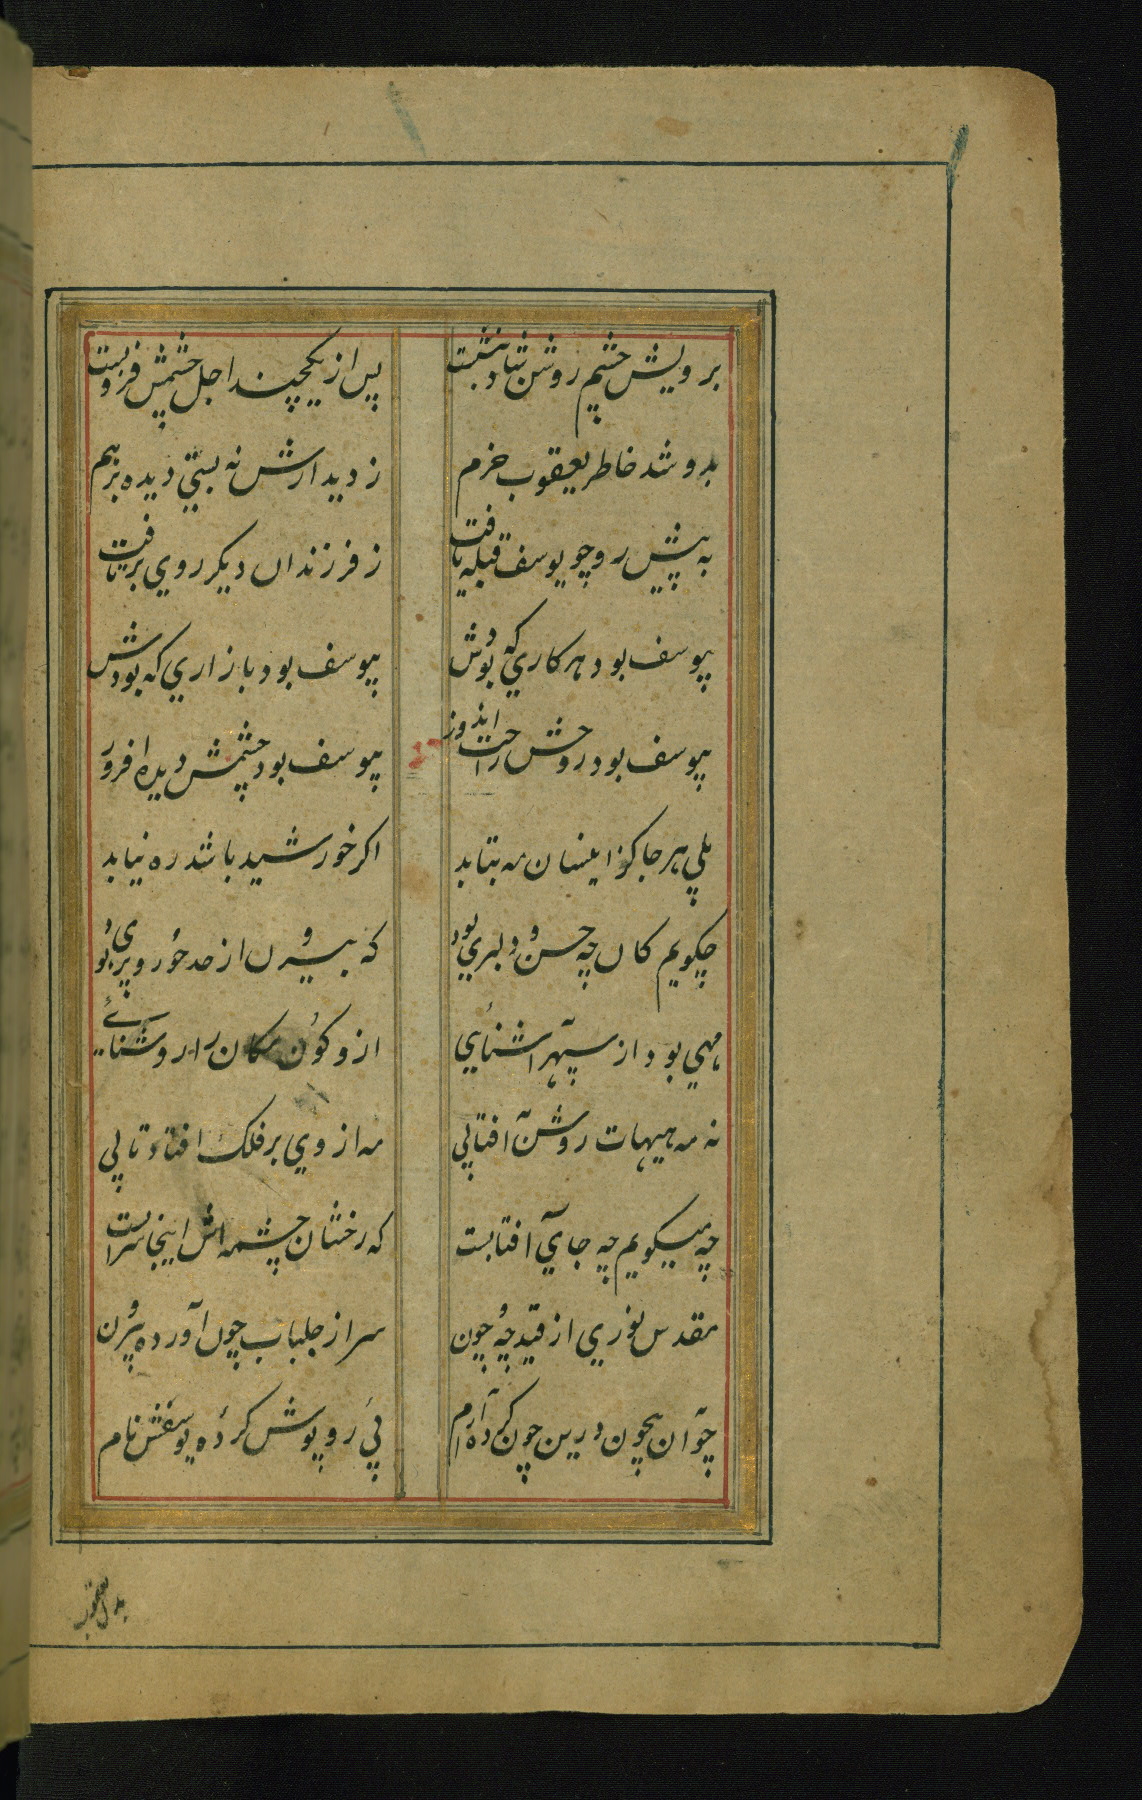 برویش چشم روشن شاد بنشست پس از یکچند اجل چشمش فروبست
بدو شد خاطر یعقوب خرم ز دیدارش نه بستی دیده برهم
به پیش رو چو یوسف قبله یافت ز فرزندان دیکر روی برتافت
بیوسف بود هر کاری که بودش بیوسف بود بازاری که بودش
بیوسف بود روحش راحت اندوز بیوسف بود چشمش دیده افروز
بلی هر جا کز اینسان مه بتابد اکر خورشید باشد ره نیابد
چکویم کان چه حسن و دلبری بود که بیرون از حد حور و پری بود
مهی بود از سپهر آشنایی ازو کون و مکان را روشنایی
نه مه هیهات روشن آفتابی مه از وی بر فلک افتاده تابی
چه میکویم چه جای آفتابست که رخشان چشمه اش اینجا سرابست
مقدس نوری از قید چه و چون سر از جلباب چون آورده بیرون
چو آن بیچون درین چون کرده آرام پی روپوش کرده یوسفش نام
بدل یعقوب